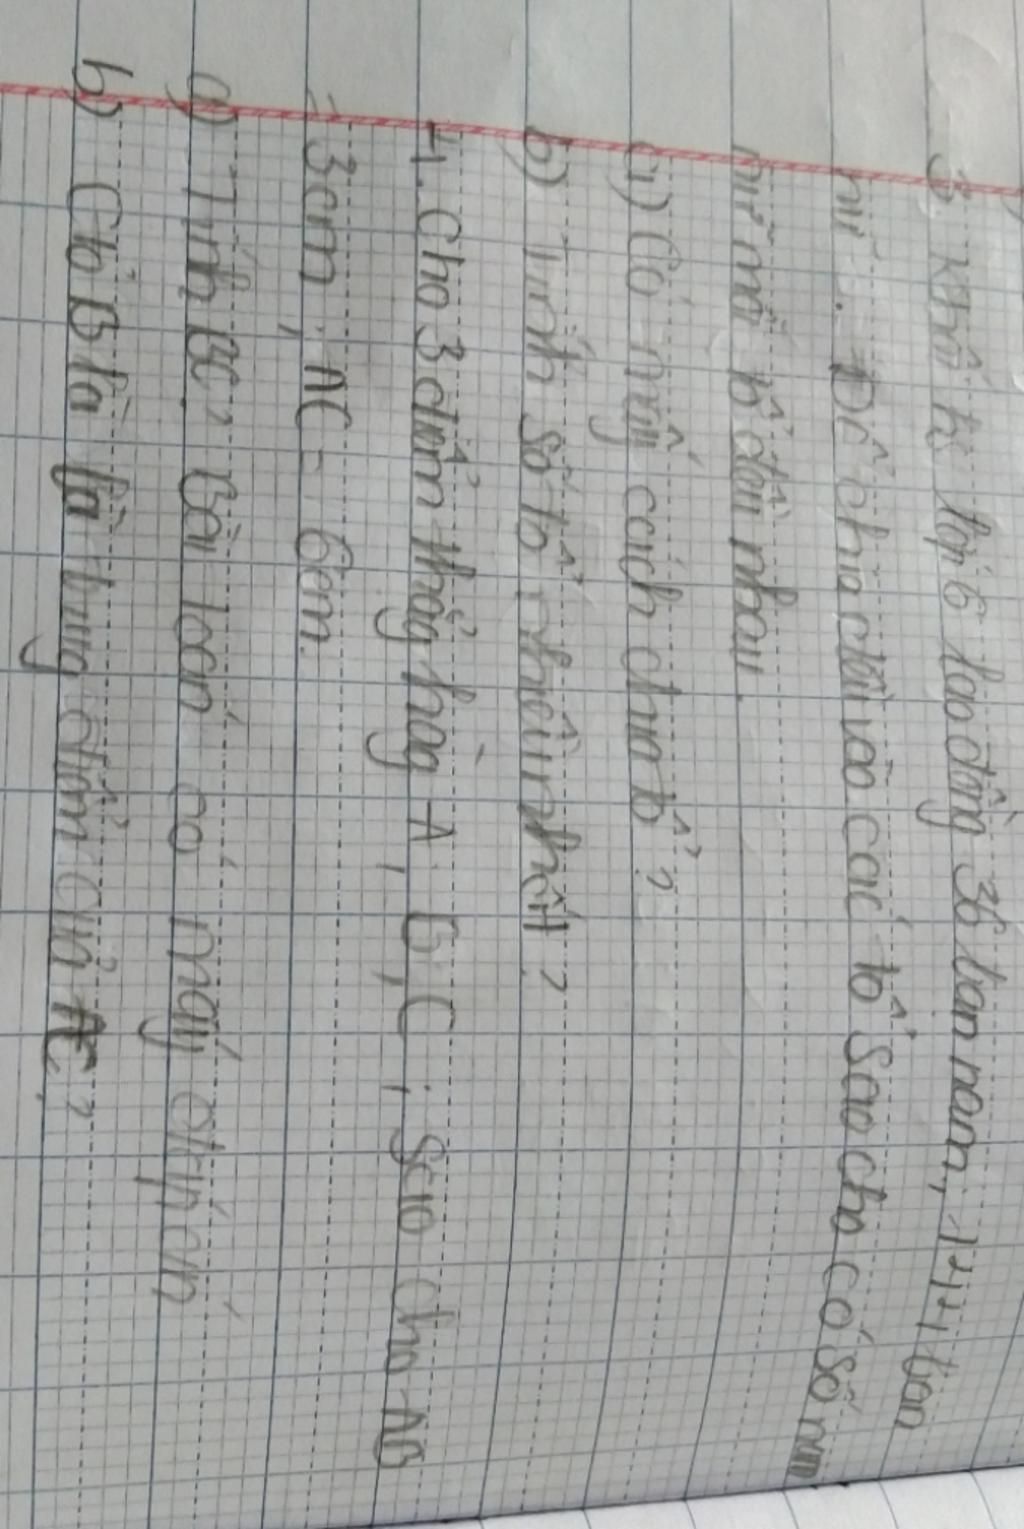 3. Khối lớp 6 lao động 36 bạn nam, 144 bạn
nữ. Để chia đều vào các tổ sao cho có số nam
nữ mỗi tổ đều nhau.
a) Có mấy cách chia tổ?
b) Tính số tổ nhiều nhất?
4. Cho 3 điểm thẳng hàng A, B, C, sao cho AB
= 3cm, AC = 6cm.
a) Tính BC? Bài toán có mấy đáp án
b) Chỏ B là là trung điểm của AC?